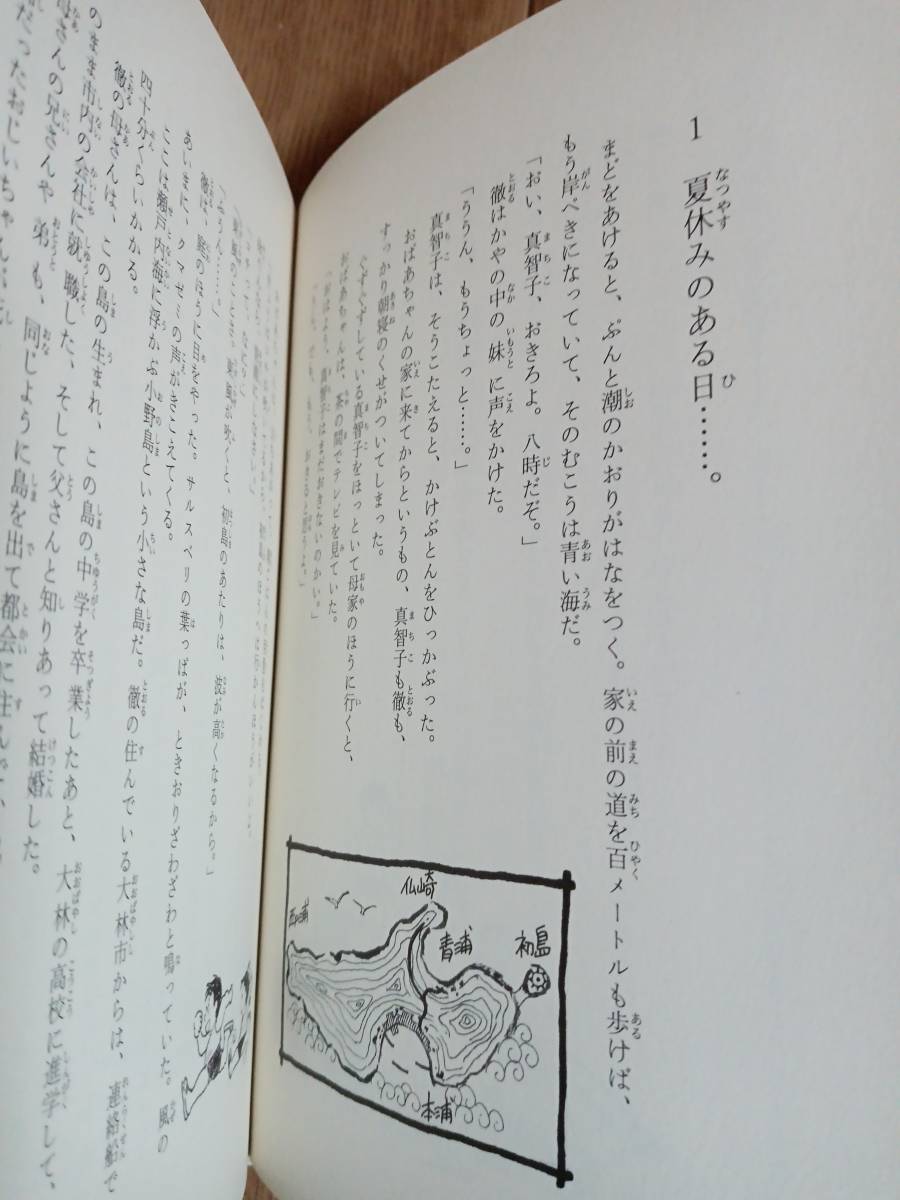 1 夏休みのある日……。
まどをあけると、ぷんと潮のかおりがはなをつく。家の前の道を百メートルも歩けば、
もう岸ぺきになっていて、そのむこうは青い海だ。
「おい、真智子、おきろよ。八時だぞ。」
徹はかやの中の妹に声をかけた。
「ううん、もうちょっと……。」
真智子は、そうこたえると、かけぶとんをひっかぶった。
おばあちゃんの家に来てからというもの、真智子も徹も、
すっかり朝寝のくせがついてしまった。
ぐずぐずしている真智子をほっといて母家のほうに行くと、
おばあちゃんは、茶の間でテレビを見ていた。
「おはよう。真智子はまだおきないのかい。」
仏崎
西浦
青浦
初島
本浦
東風が吹くと、初島のあたりは、波が高くなるから。」
「ふうん……。」
徹は、庭のほうに目をやった。サルスベリの葉っぱが、ときおりざわざわと鳴っていた。風の
あいまに、クマゼミの声がきこえてくる。
ここは瀬戸内海に浮かぶ小野島という小さな島だ。徹の住んでいる大林市からは、連絡船で
四十分くらいかかる。
徹の母さんは、この島の生まれ、この島の中学を卒業したあと、大林の高校に進学して、
のまま市内の会社に就職した、そして父さんと知りあって結婚した。
母さんの兄さんや弟も、同じように島を出て都会に住んで
だったおじいちゃんが